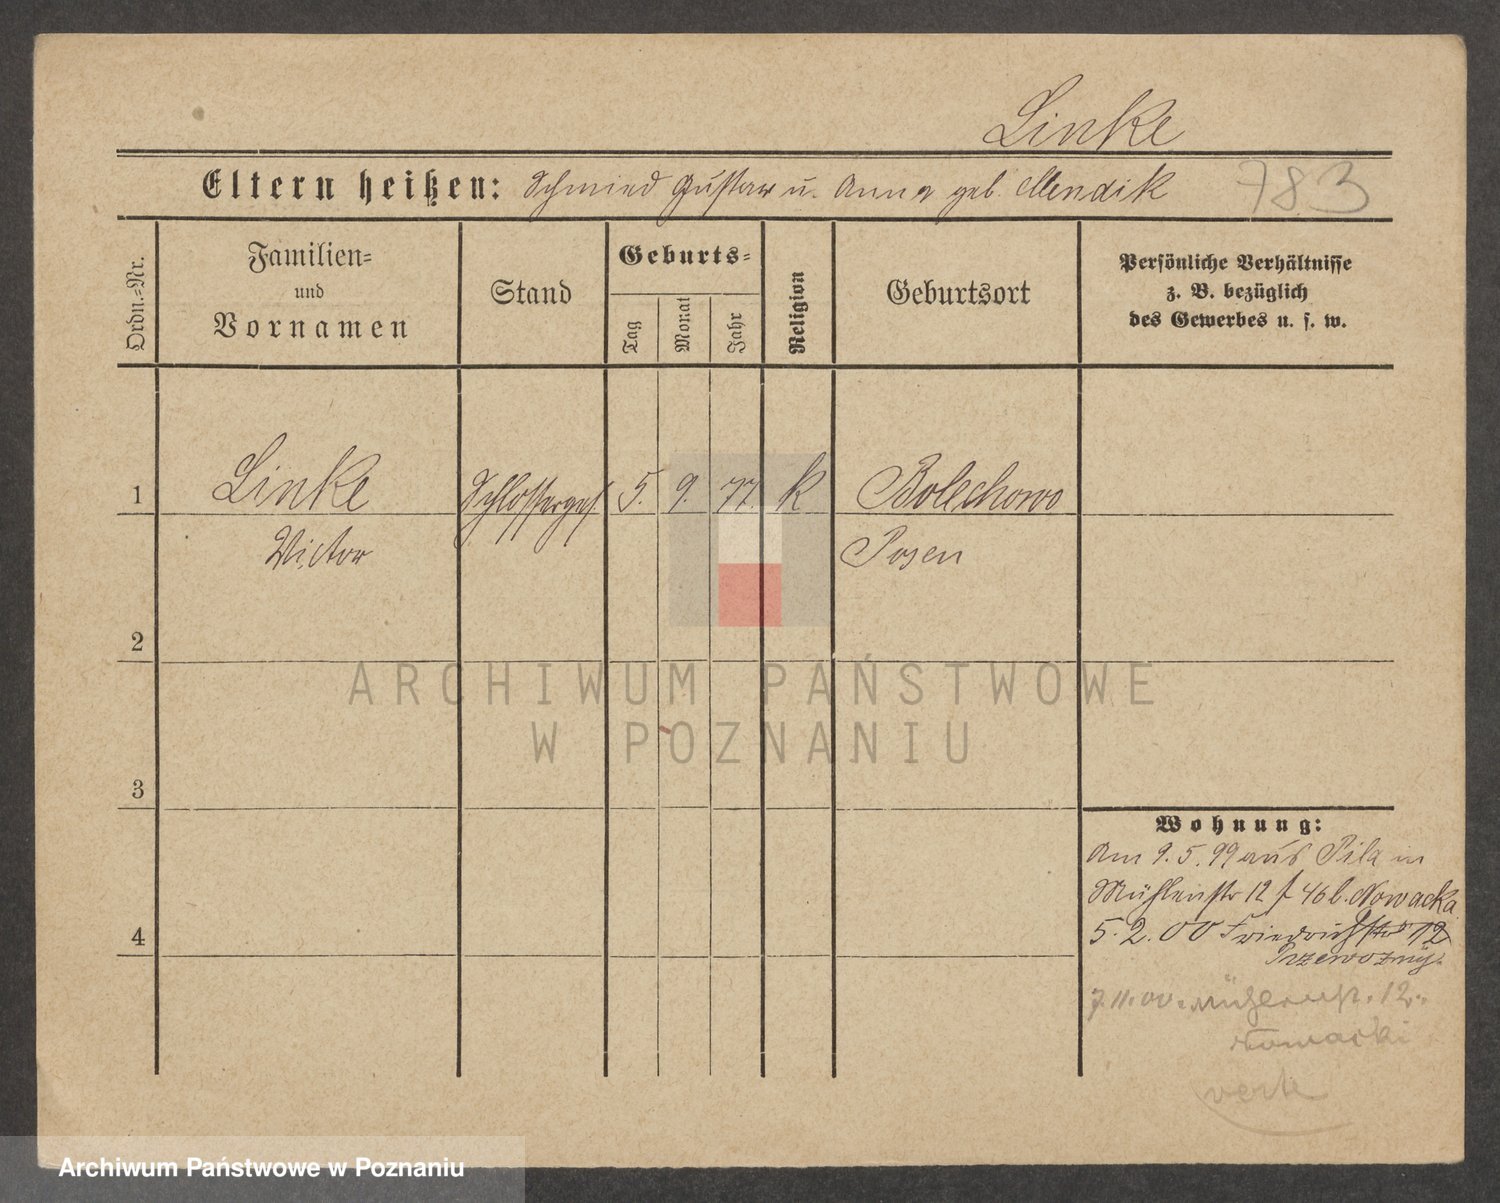 Linke
Eltern heißen: Schmied Gustav u. Anna geb. Mendik 783
Ordn.-Nr.
Familien-
und
Vornamen
Stand
Geburts-
Tag
Monat
Jahr
Religion
Geburtsort
Persönliche Verhältnisse
z. B. bezüglich
des Gewerbes u. s. w.
1 Linke Schlosserges. 5. 9. 77. k Bolechowo
Victor Posen
2
3
4
Wohnung:
Am 9.5.99 aus Pila in
Mühlenstr 12 b. Nowacka
5.2.00 Friedrichstr 12
Przewozny
7.11.00. Mühlenstr. 12.
Nowacki
verte
ARCHIWUM PAŃSTWOWE
W POZNANIU
Archiwum Państwowe w Poznaniu